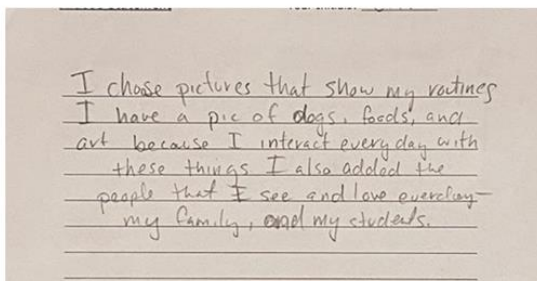 I choose pictures that show my routines
I have a pic of dogs, foods, and
art because I interact everyday with
these things I also added the
people that I see and love everday-
my family, and my students.